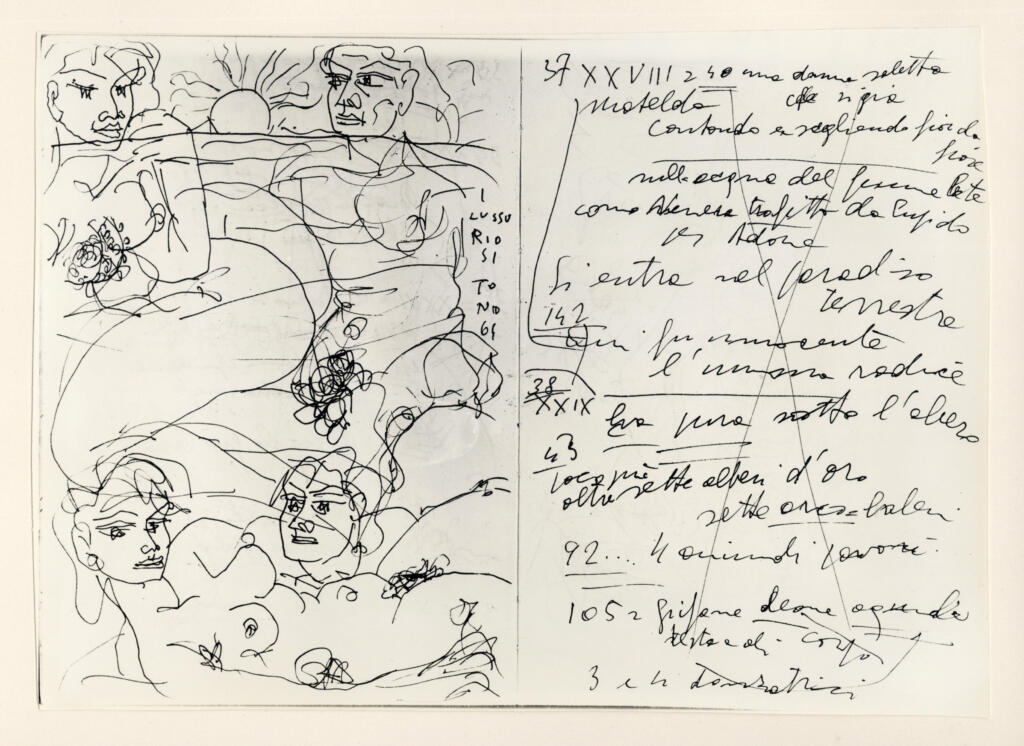 I
LUSSU
RIO
SI
TO
NO
37 XXVIII 2 40 una donna soletta
Matelda che sigia
cantando e scegliendo fior da
fiore
nell acqua del fiume Lete
come Venere trafitta da Cupido
Adone
Si entra nel paradiso
terrestre
142
Qui fu innocente
l'umana radice
38
XXIX
Eva pura sotto l'albero
43
poco più
oltre sette alberi d'oro
sette arcobaleni
92... 4 animali
105 2 grifone leone aquila
testa di corpo
3 e 4 danzatrici